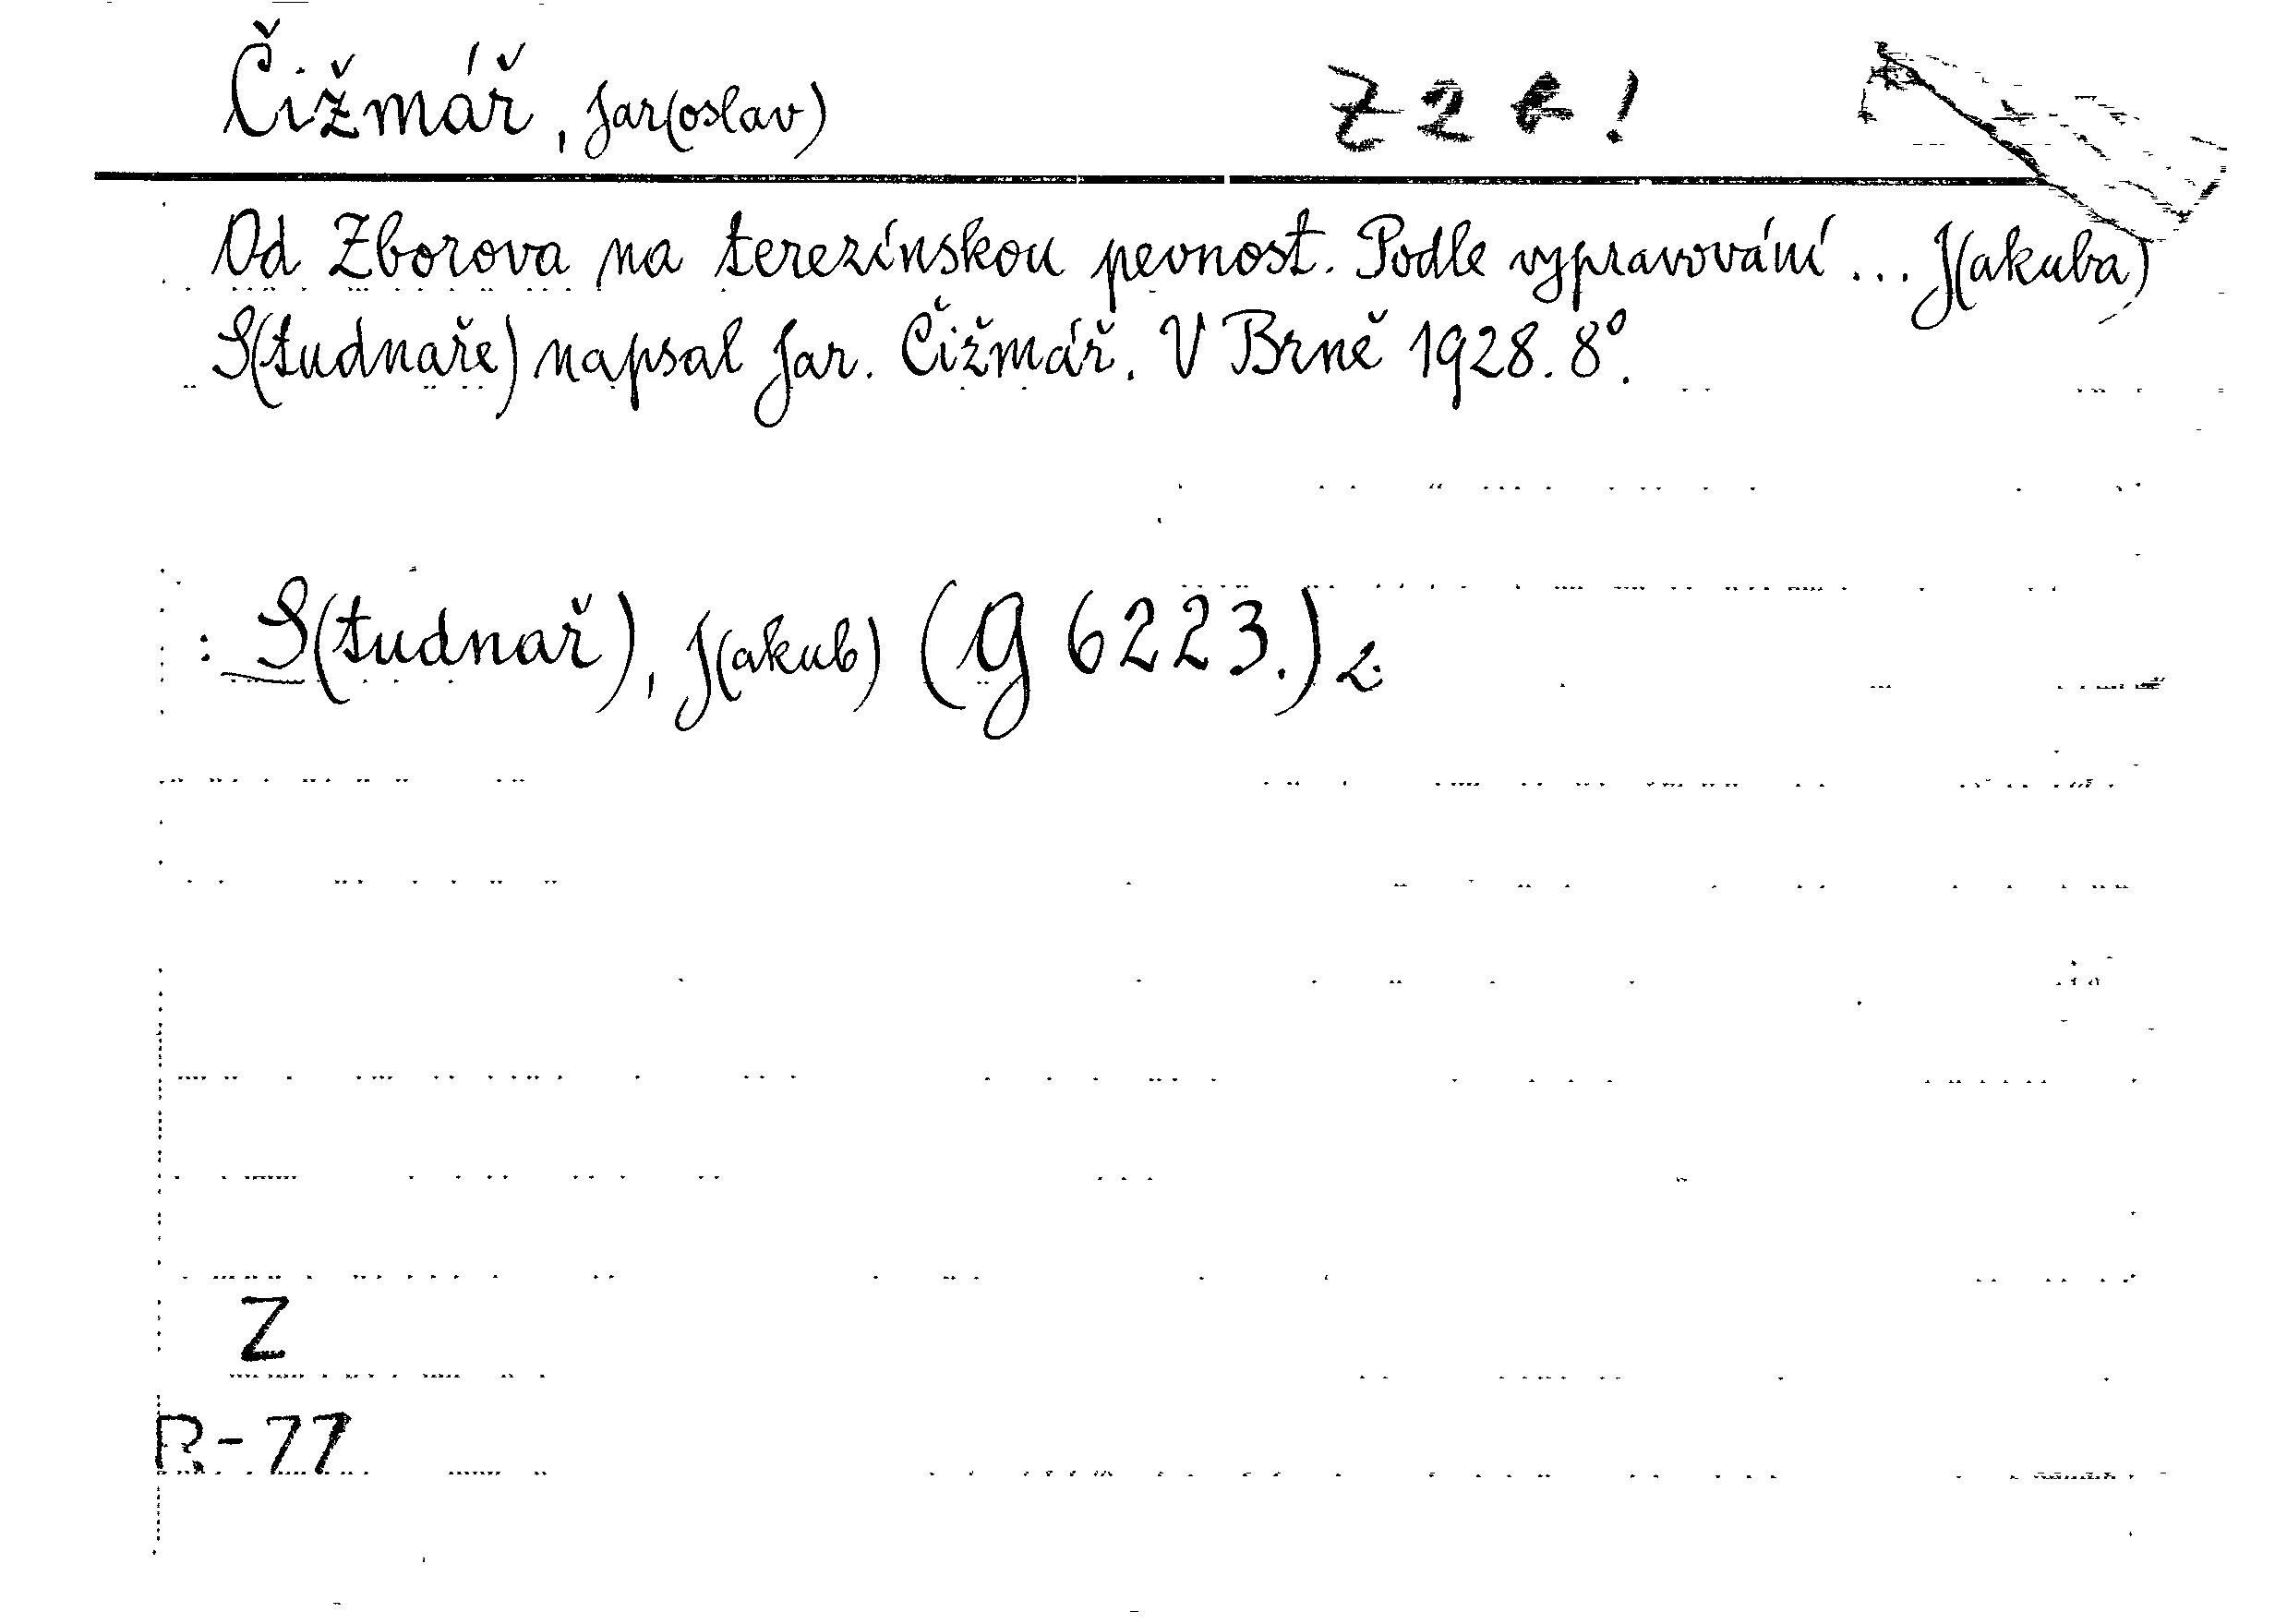 Čižmář, Jar(oslav)
Od Zborova na terezínskou pevnost. Podle vypravování ... J(akuba)
S(tudnaře) napsal Jar. Čižmář. V Brně 1928. 8°.
: S(tudnař), J(akub) (g 6223.)
Z
R-77